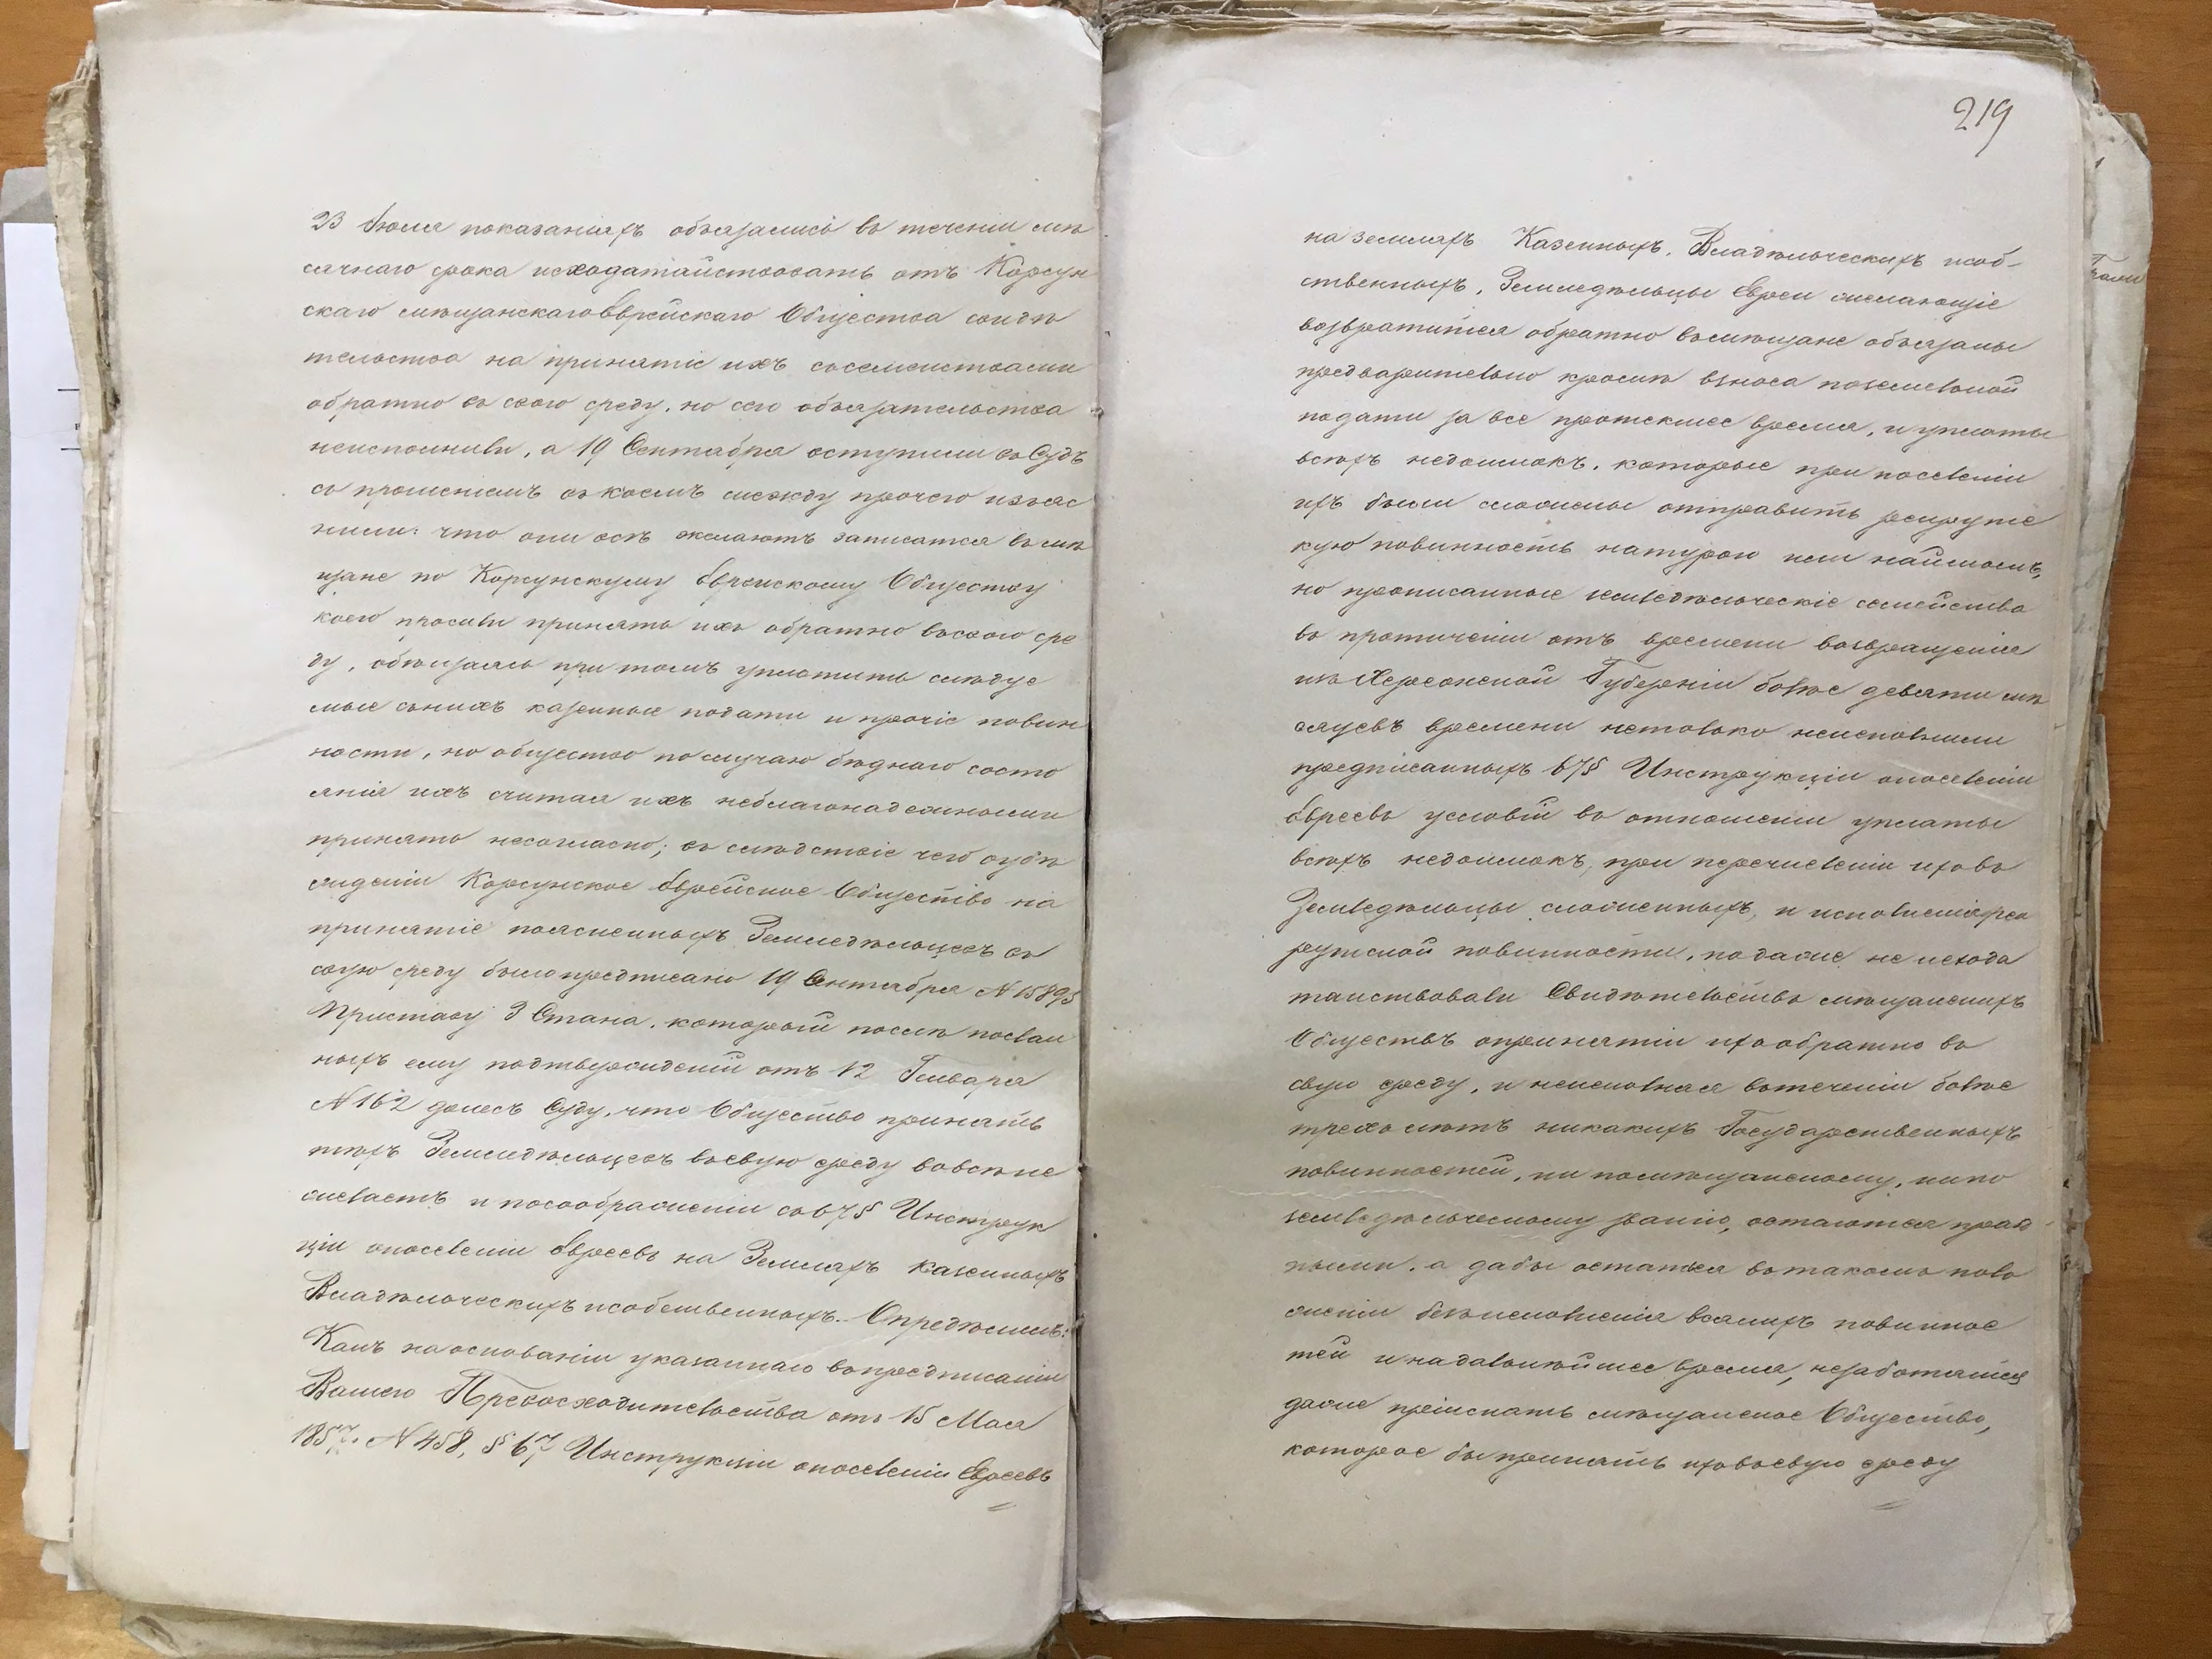 23 Іюля показаніяхъ обязались въ теченіи мѣ
сячнаго срока исходатайствовать отъ Корсун
скаго мѣщанскаго Еврейскаго Общества свидѣ
тельства на принятіе ихъ съ семействами
обратно въ свою среду, но сего обязательства
неисполнили, а 19 Сентября вступили въ Судъ
съ прошеніемъ въ коемъ между прочего изъяс
нили: что они всѣ желаютъ записатся въ мѣ
щане по Корсунскому Еврейскому Обществу
коего просили принять ихъ обратно въ свою сре
ду, обѣщаясь при томъ уплотить слѣдуе
мые сънихъ казенные подати и прочіе повин
ности, но общество по случаю бѣднаго состо
янія ихъ считая ихъ неблагонадежными
принять несогласно; въ слѣдствіе чего объ
Корсунское Еврейское Общество на
принятіе поясненныхъ Земледѣльцевъ въ
свою среду было предписано 19 Сентября № 15895
Приставу 3 Стана, который послѣ послан
ныхъ ему подтвержденій отъ 12 Генваря
№ 162 донесъ Суду, что Общество принять
тѣхъ Земледѣльцевъ въ свую среду вовсѣ не
желаетъ и посоображеніи съ 67§ Инструк
ціи опоселеніи Евреевъ на Земляхъ казенныхъ
Владѣльческихъ исобственныхъ. – Опредѣлилъ:
Какъ на основаніи указаннаго впредписаніи
Вашего Превосходительства отъ 15 Мая
1857 г. № 458, § 67 Инструкціи опоселеніи Евреевъ
219
на земляхъ Казенныхъ, Владѣльческихъ исоб-
ственныхъ, Земледѣльцы Евреи желающіе
возвратится обратно въмѣщане обязаны
предварительно кромѣ взноса поземельной
подати за все протекшее время, и уплоты
всѣхъ недоимокъ, которые при поселеніи
ихъ были сложены отправить рекрутс
кую повинность натурою или наймомъ,
но прописанные земледѣльческіе семейства
въ протичени отъ времени возвращенія
изъ Херсонской Губерніи болѣе девяти мѣ
сяцевъ времени нетолько неисполнили
предписанныхъ 67§ Инструкціи опоселеніи
Евреевъ условій въ отношеніи уплаты
всѣхъ недоимокъ, при перечисленіи ихъ въ
Земледѣльцы сложенныхъ, и исполненія рек
рутской повинности, но даже не исхода
таиствовали Свидѣтельствъ мѣщанскихъ
Обществъ опринятіи ихъ обратно въ
свую среду, и неисполняя втеченіи болѣе
трехъ лѣтъ никакихъ Государственныхъ
повинностей, ни помѣщанскому, нипо
земледѣльческому званію, остаются празд
ными, а дабы остатся въ такомъ поло
женіи безъ исполненія всякихъ повиннос
тей и надальнѣйшее время, незаботятся
даже пріискать мѣщанское Общество,
которое бы принять ихъ въ свую среду